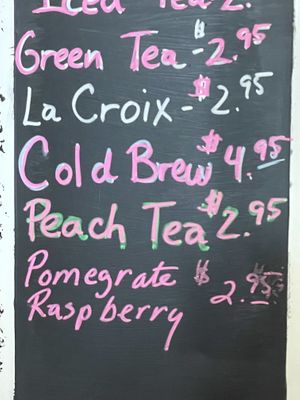 Iced Tea 2.
Green Tea - $2.95
La Croix - $2.95
Cold Brew $4.95
Peach Tea $2.95
Pomegrate $2.95
Raspberry